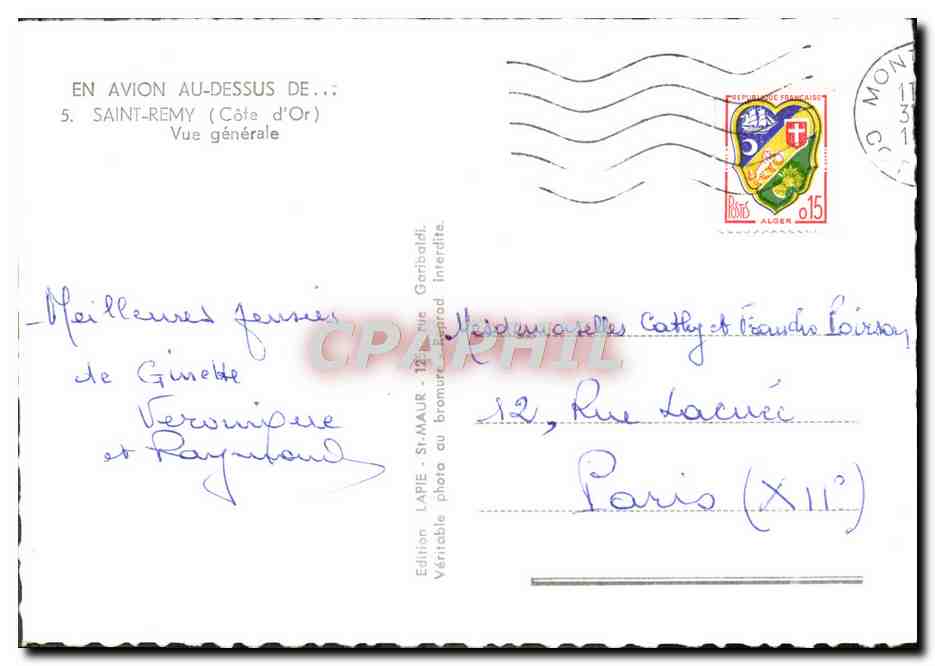 EN AVION AU-DESSUS DE...
5. SAINT-REMY (Côte d'Or)
Vue générale
MONT
REPUBLIQUE FRANÇAISE
POSTES
0,15
ALGER
Edition LAPIE - St-MAUR - rue Garibaldi.
Véritable photo au bromure Reprod interdite.
CPAPHIL
Meilleures pensées
de Ginette
Veronique
et Raymond
Mesdemoiselles Cathy et
12, Rue Lacuée
Paris (XIIº)